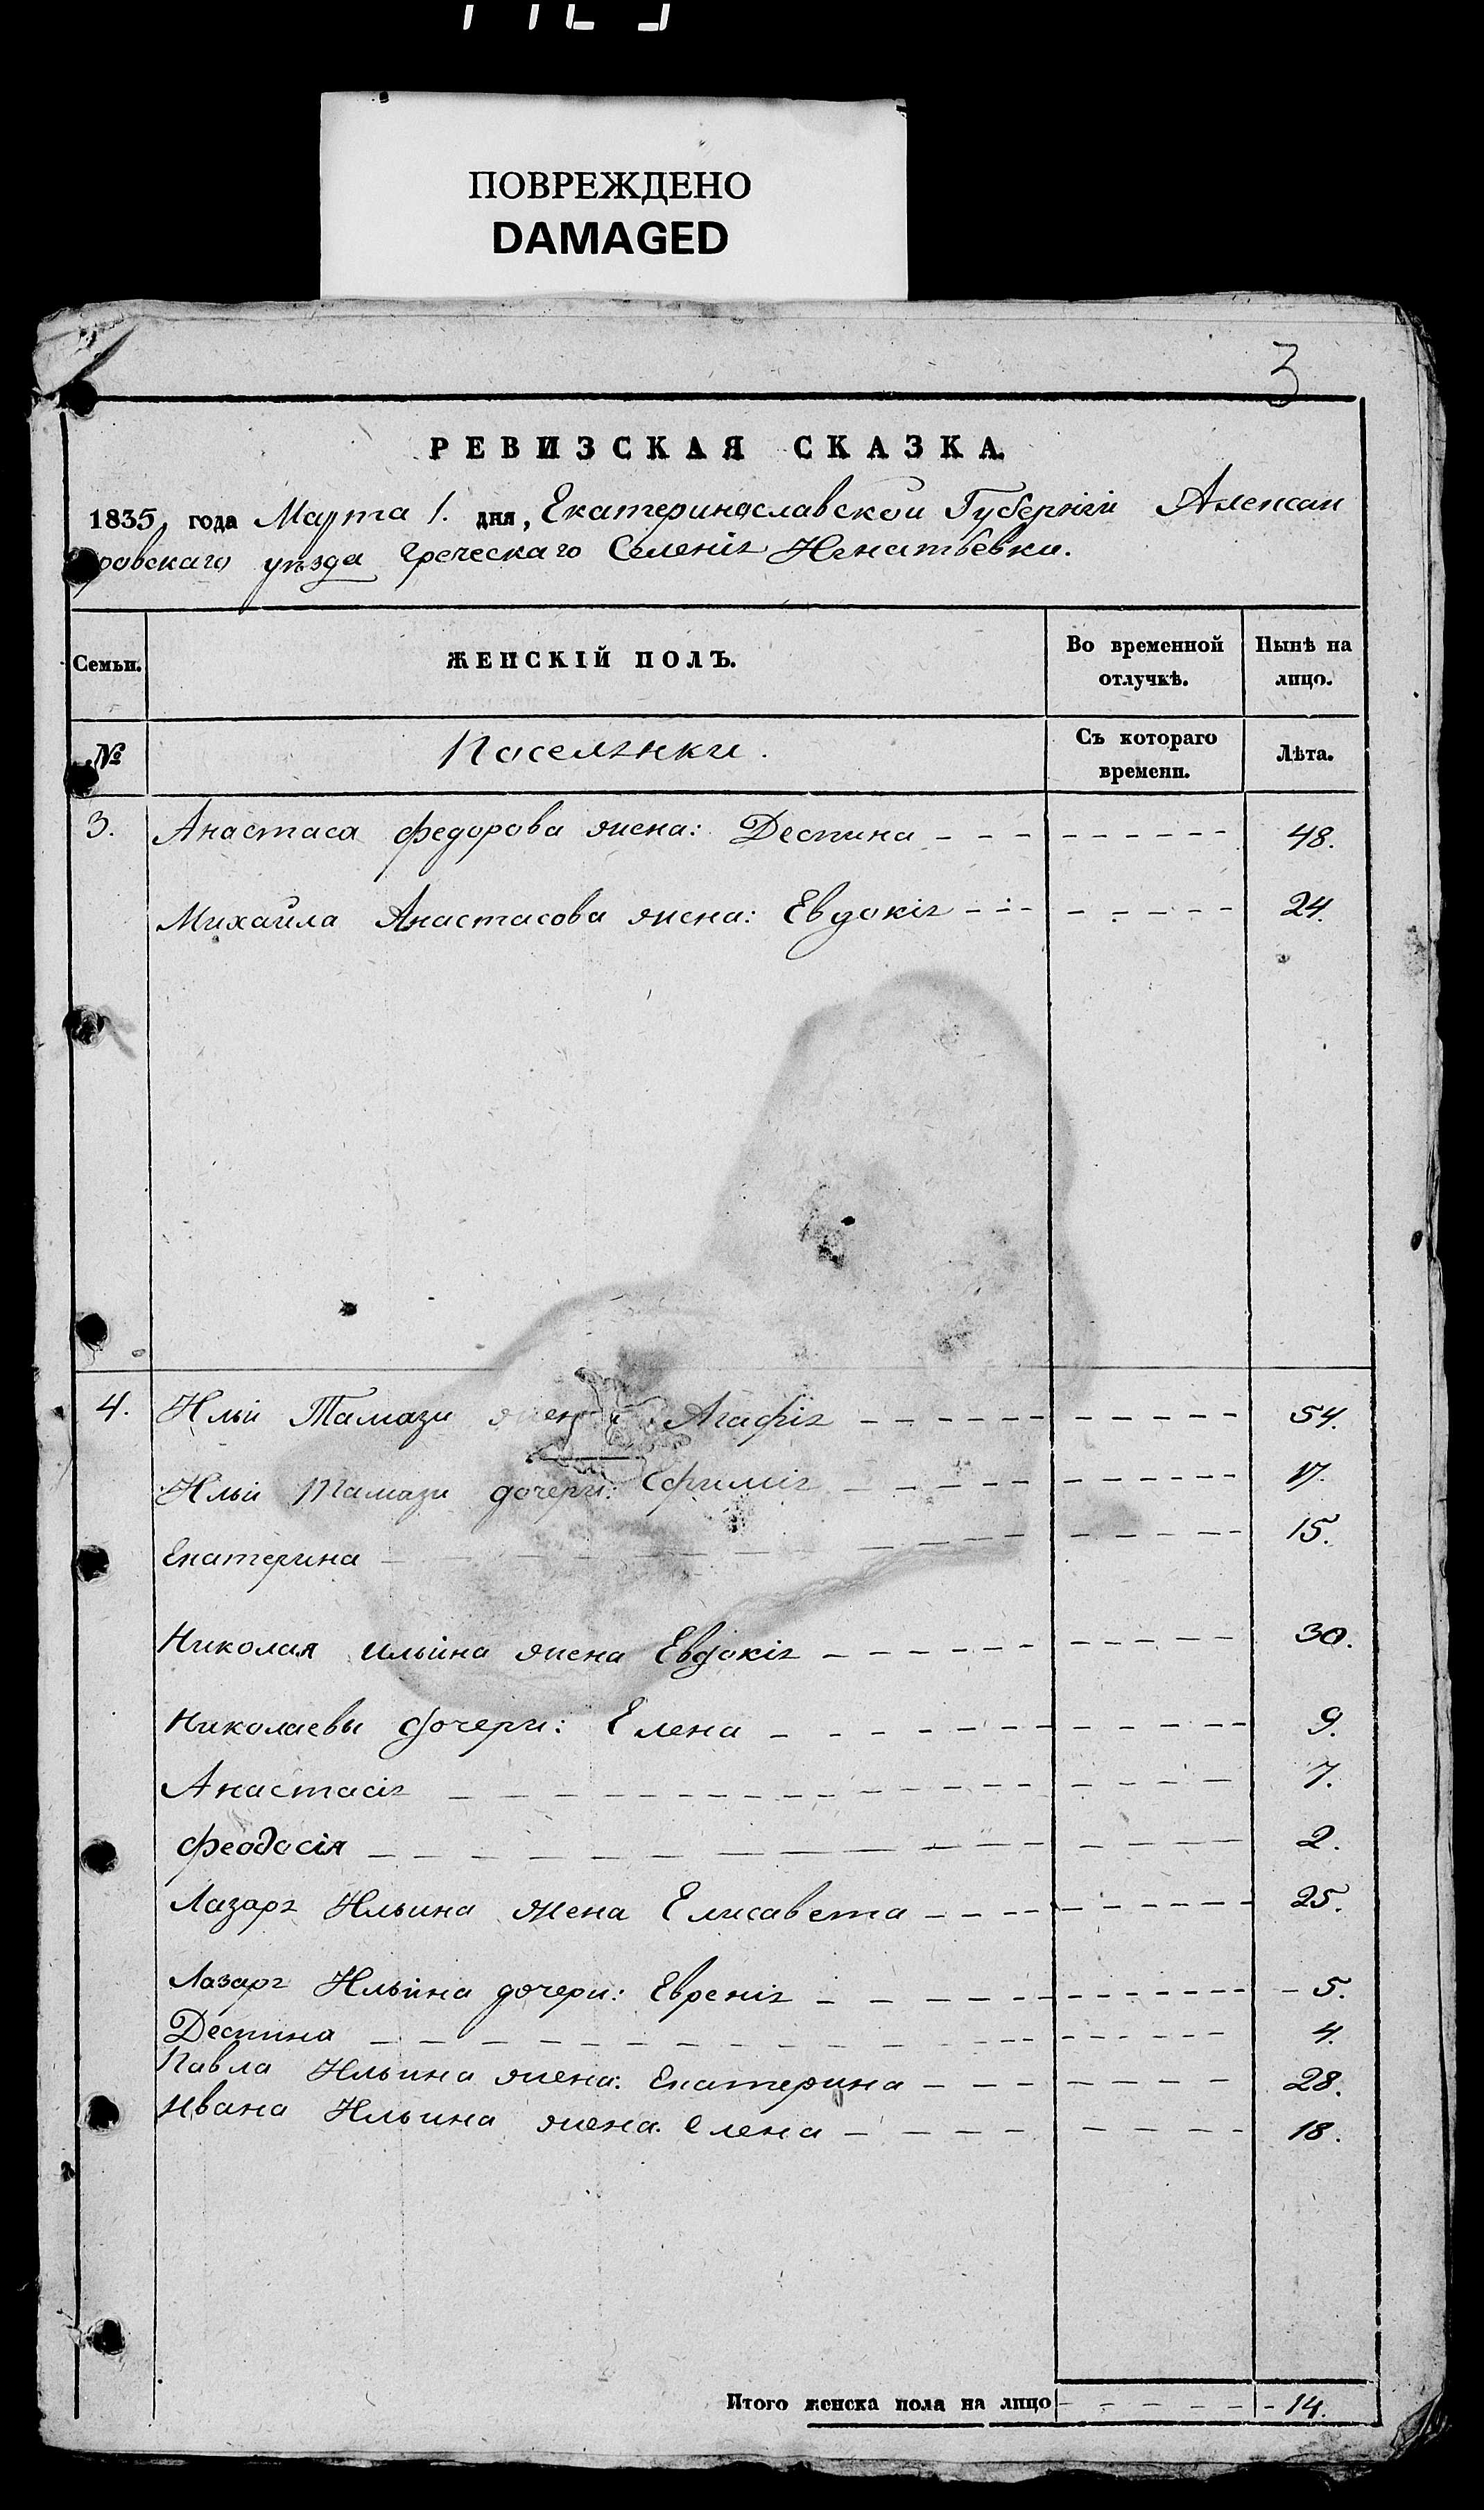 ПОВРЕЖДЕНО
DAMAGED
3
РЕВИЗСКАЯ СКАЗКА.
1835, года Марта 1. дня, Екатеринославской Губерніи Алексан
ровскаго уѣзда Греческаго Селенія Игнатьевки.
Семьи. ЖЕНСКІЙ ПОЛЪ. Во временной отлучкѣ. Нынѣ на лицо.
№ Поселянки. Съ котораго времени. Лѣта.
3. Анастаса Федорова жена: Деспина 48.
Михайла Анастасова жена: Евдокія 24.
4. Ильи Тамази жена Агафія 54.
Ильи Тамази дочери: Ефимія 17.
Екатерина 15.
Николая Ильина жена Евдокія 30.
Николаевы дочери: Елена 9.
Анастасія 7.
Феодосія 2.
Лазаря Ильина жена Елисавета 25.
Лазаря Ильина дочери: Евренія 5.
Деспина 4.
Павла Ильина жена: Екатерина 28.
Ивана Ильина жена. Елена 18.
Итого женска пола на лицо 14.